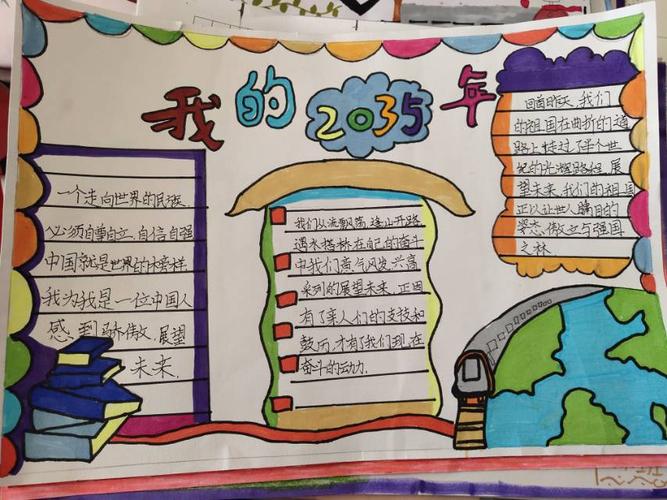 我的2035年
一个走向世界的民族
必须自尊自立，自信自强
中国就是世界的榜样
我为我是一位中国人
感到骄傲，展望
未来.
我们从流飘荡，逢山开路
遇水搭桥在自己的奋斗
中我们意气风发，兴高
采列的展望未来，正因
有了亲人们的支技和
鼓历，才有了我们现在
奋斗的动力.
回首昨天，我们
的祖国在曲折的道
路上走过了半个世
纪的光辉路程，展
望未来，我们的祖国
正以让世人瞩目的
姿态，傲立与强国
之林